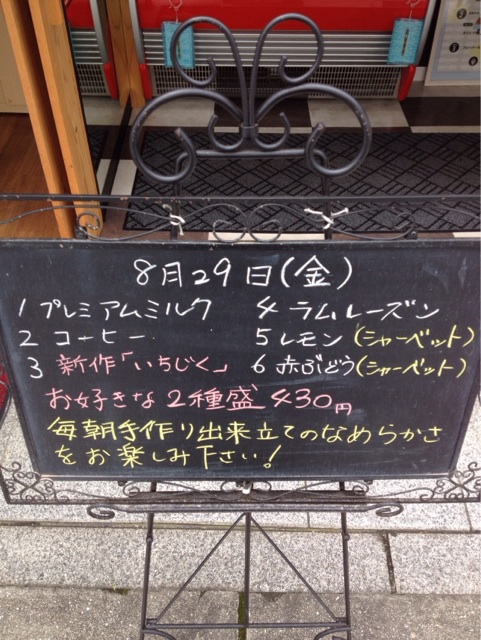 8月29日(金)
1 プレミアムミルク 4 ラムレーズン
2 コーヒー 5 レモン(シャーベット)
3 新作「いちじく」 6 赤ぶどう(シャーベット)
お好きな2種盛430円
毎朝手作り出来立てのなめらかさ
をお楽しみ下さい!